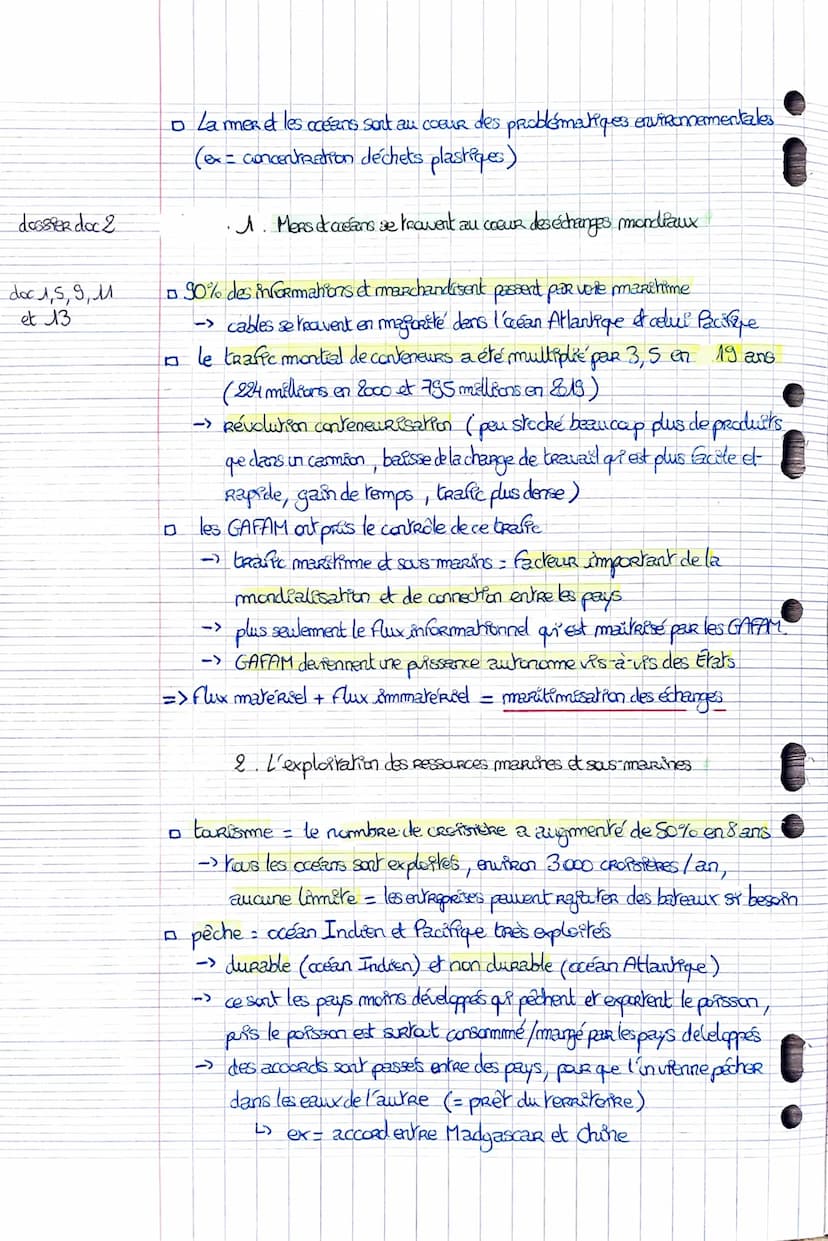 ▫ La mer et les océans sont au coeur des problématiques environnementales
(ex = concentration déchets plastiques)
dossier doc 2
. 1. Mers et océans se trouvent au coeur des échanges mondiaux
doc 1, 5, 9, 11
et 13
▫ 90% des informations et marchandisent passent par voie maritime
-> cables se trouvent en majorité dans l'océan Atlantique et celui Pacifique
▫ le trafic montial de conteneurs a été multiplié par 3,5 en 19 ans
(224 millions en 2000 et 795 millions en 2019)
-> révolution conteneurisation (peu stocké beaucoup plus de produits
que dans un camion, baisse de la charge de travail qui est plus facile et
rapide, gain de temps, trafic plus dense)
▫ les GAFAM ont pris le contrôle de ce trafic
-> trafic maritime et sous-marins = facteur important de la
mondialisation et de connection entre les pays
-> plus seulement le flux informationnel qui est maitrisé par les GAFAM.
-> GAFAM deviennent une puissance autonome vis-à-vis des États
=> flux matériel + flux immatériel = maritimisation des échanges
2. L'exploitation des ressources marines et sous-marines
▫ tourisme = le nombre de croisière a augmenté de 50% en 8 ans
-> tous les océans sont exploités, environ 3 000 croisières/an,
aucune limite = les entreprises peuvent rajouter des bateaux si besoin
▫ pêche = océan Indien et Pacifique très exploités
-> durable (océan Indien) et non durable (océan Atlantique)
-> ce sont les pays moins développés qui pêchent et exportent le poisson,
puis le poisson est surtout consommé/mangé par les pays déleloppés
-> des accords sont passés entre des pays, pour que l'un vienne pêcher
dans les eaux de l'autre (= prêt du territoire)
↳ ex = accord entre Madgascar et Chine